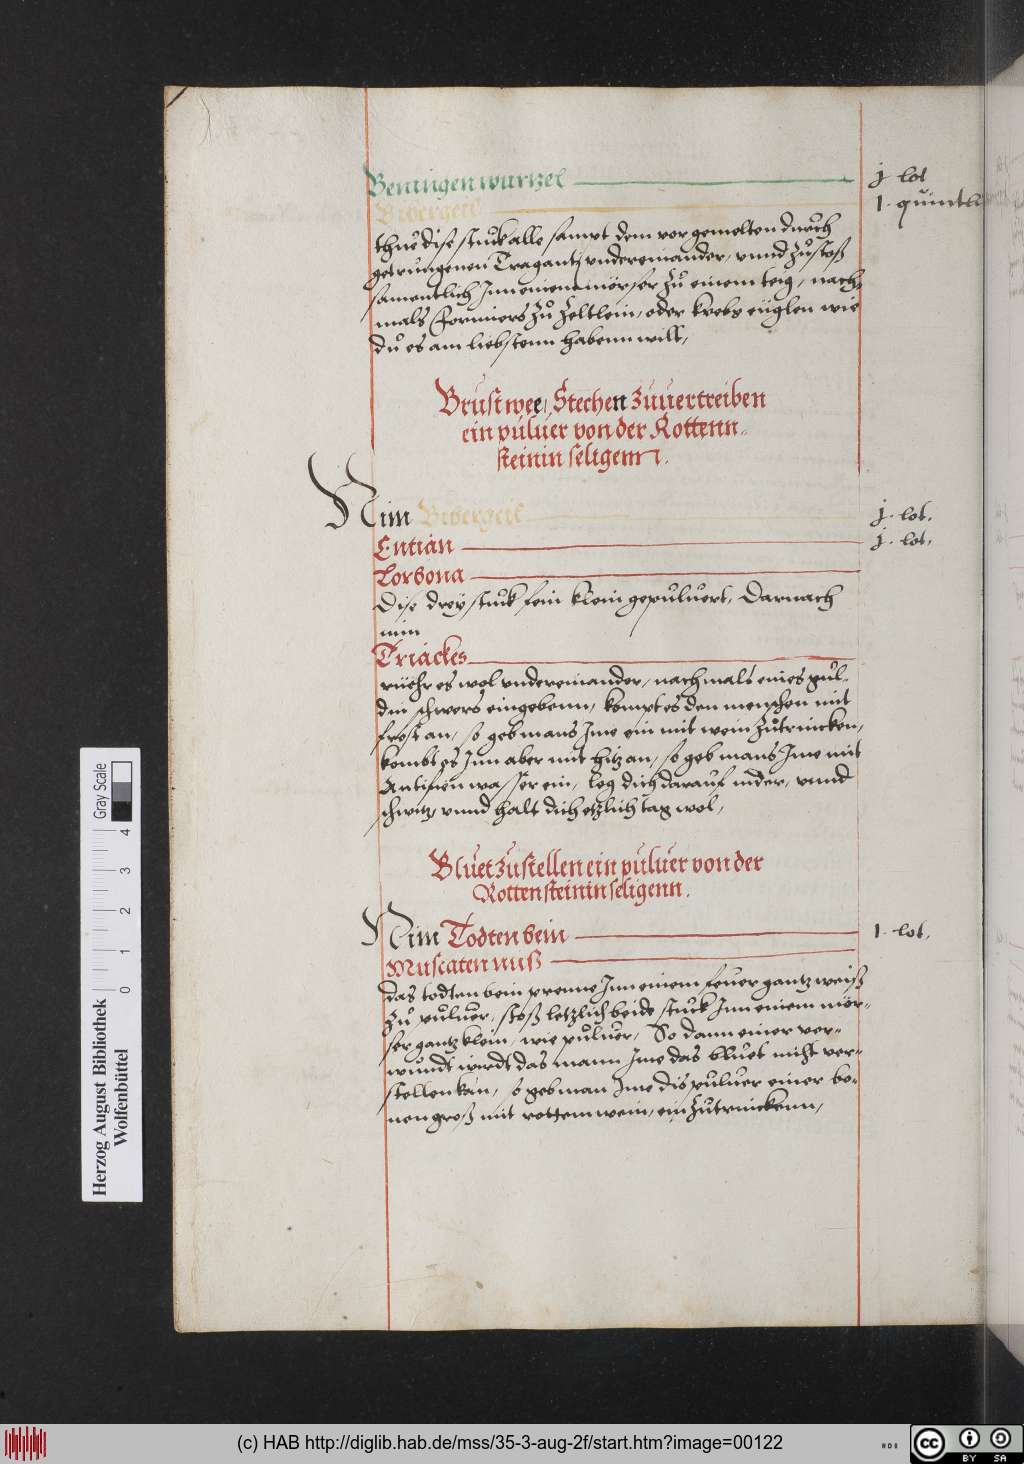 Beningen wurtzel j lot
Bibergeil 1. quintl
thue dise stuck alle sampt dem vorgemelten durch
getrungenen Tragant, vndereinander, vnnd zuͦ stoß
samentlich Inn einem mörser zuͦ einem teig, nach-
mals formiers zuͦ Zeltlein, oder krebs euglen wie
du es am liebstenn habenn wilt,
Brust wee, Stechen Zuuertreiben
ein puluer von der Rottenn-
steinin seligenn.
Nim Bibergeil j. lot.
Entian j. lot.
Torbona
Dise dreÿ stuck fein klein gepuluert, Darnach
nim
Triackes
rüehr es wol vndereinander, nachmals eines gul-
din schwers eingebenn, kompt es den menschen mit
frost an, so geb mans Ime ein mit wein zuͦtrincken,
kombt es Inn aber mit hitz an, so geb mans Ime mit
Antifien wasser ein, leg dich darauf nider, vnnd
schwitz, vnnd halt dich etzlich tag wol,
Bluet zustellen ein puluer von der
Rottensteinin seligenn.
Nim Todten bein 1. lot.
Muscaten nuß
das todten bein prenne Inn einem feuer gantz weiß
zuͦ puluer, stoß letzlich beide stuck Inn einem mör-
ser gantz klein, wie puluer, So dann einer ver-
wundt wirdt das mann Ime das bluet nicht ver-
stellen kan, so geb man Ime dis puluer einer bo-
nen groß mit rottem wein, ein zuͦtrinckenn,
Herzog August Bibliothek
Wolfenbüttel
0 1 2 3 4
Gray Scale
(c) HAB http://diglib.hab.de/mss/35-3-aug-2f/start.htm?image=00122
cc BY SA